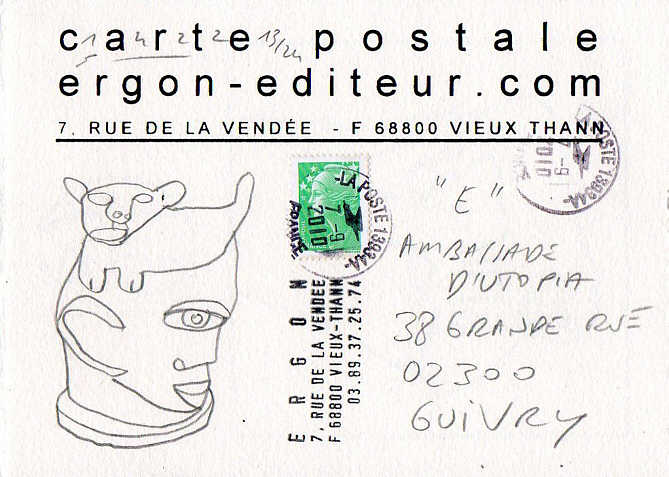 carte postale
13/24
ergon-editeur.com
7, RUE DE LA VENDÉE - F 68800 VIEUX THANN
LA POSTE 13934A
7-9
2010
FRANCE
LA POSTE 13934A
7-9
2010
"E"
AMBASSADE
D'UTOPIA
38 GRANDE RUE
02300
GUIVRY
ERGON
7, RUE DE LA VENDEE
F 68800 VIEUX-THANN
03.89.37.25.74